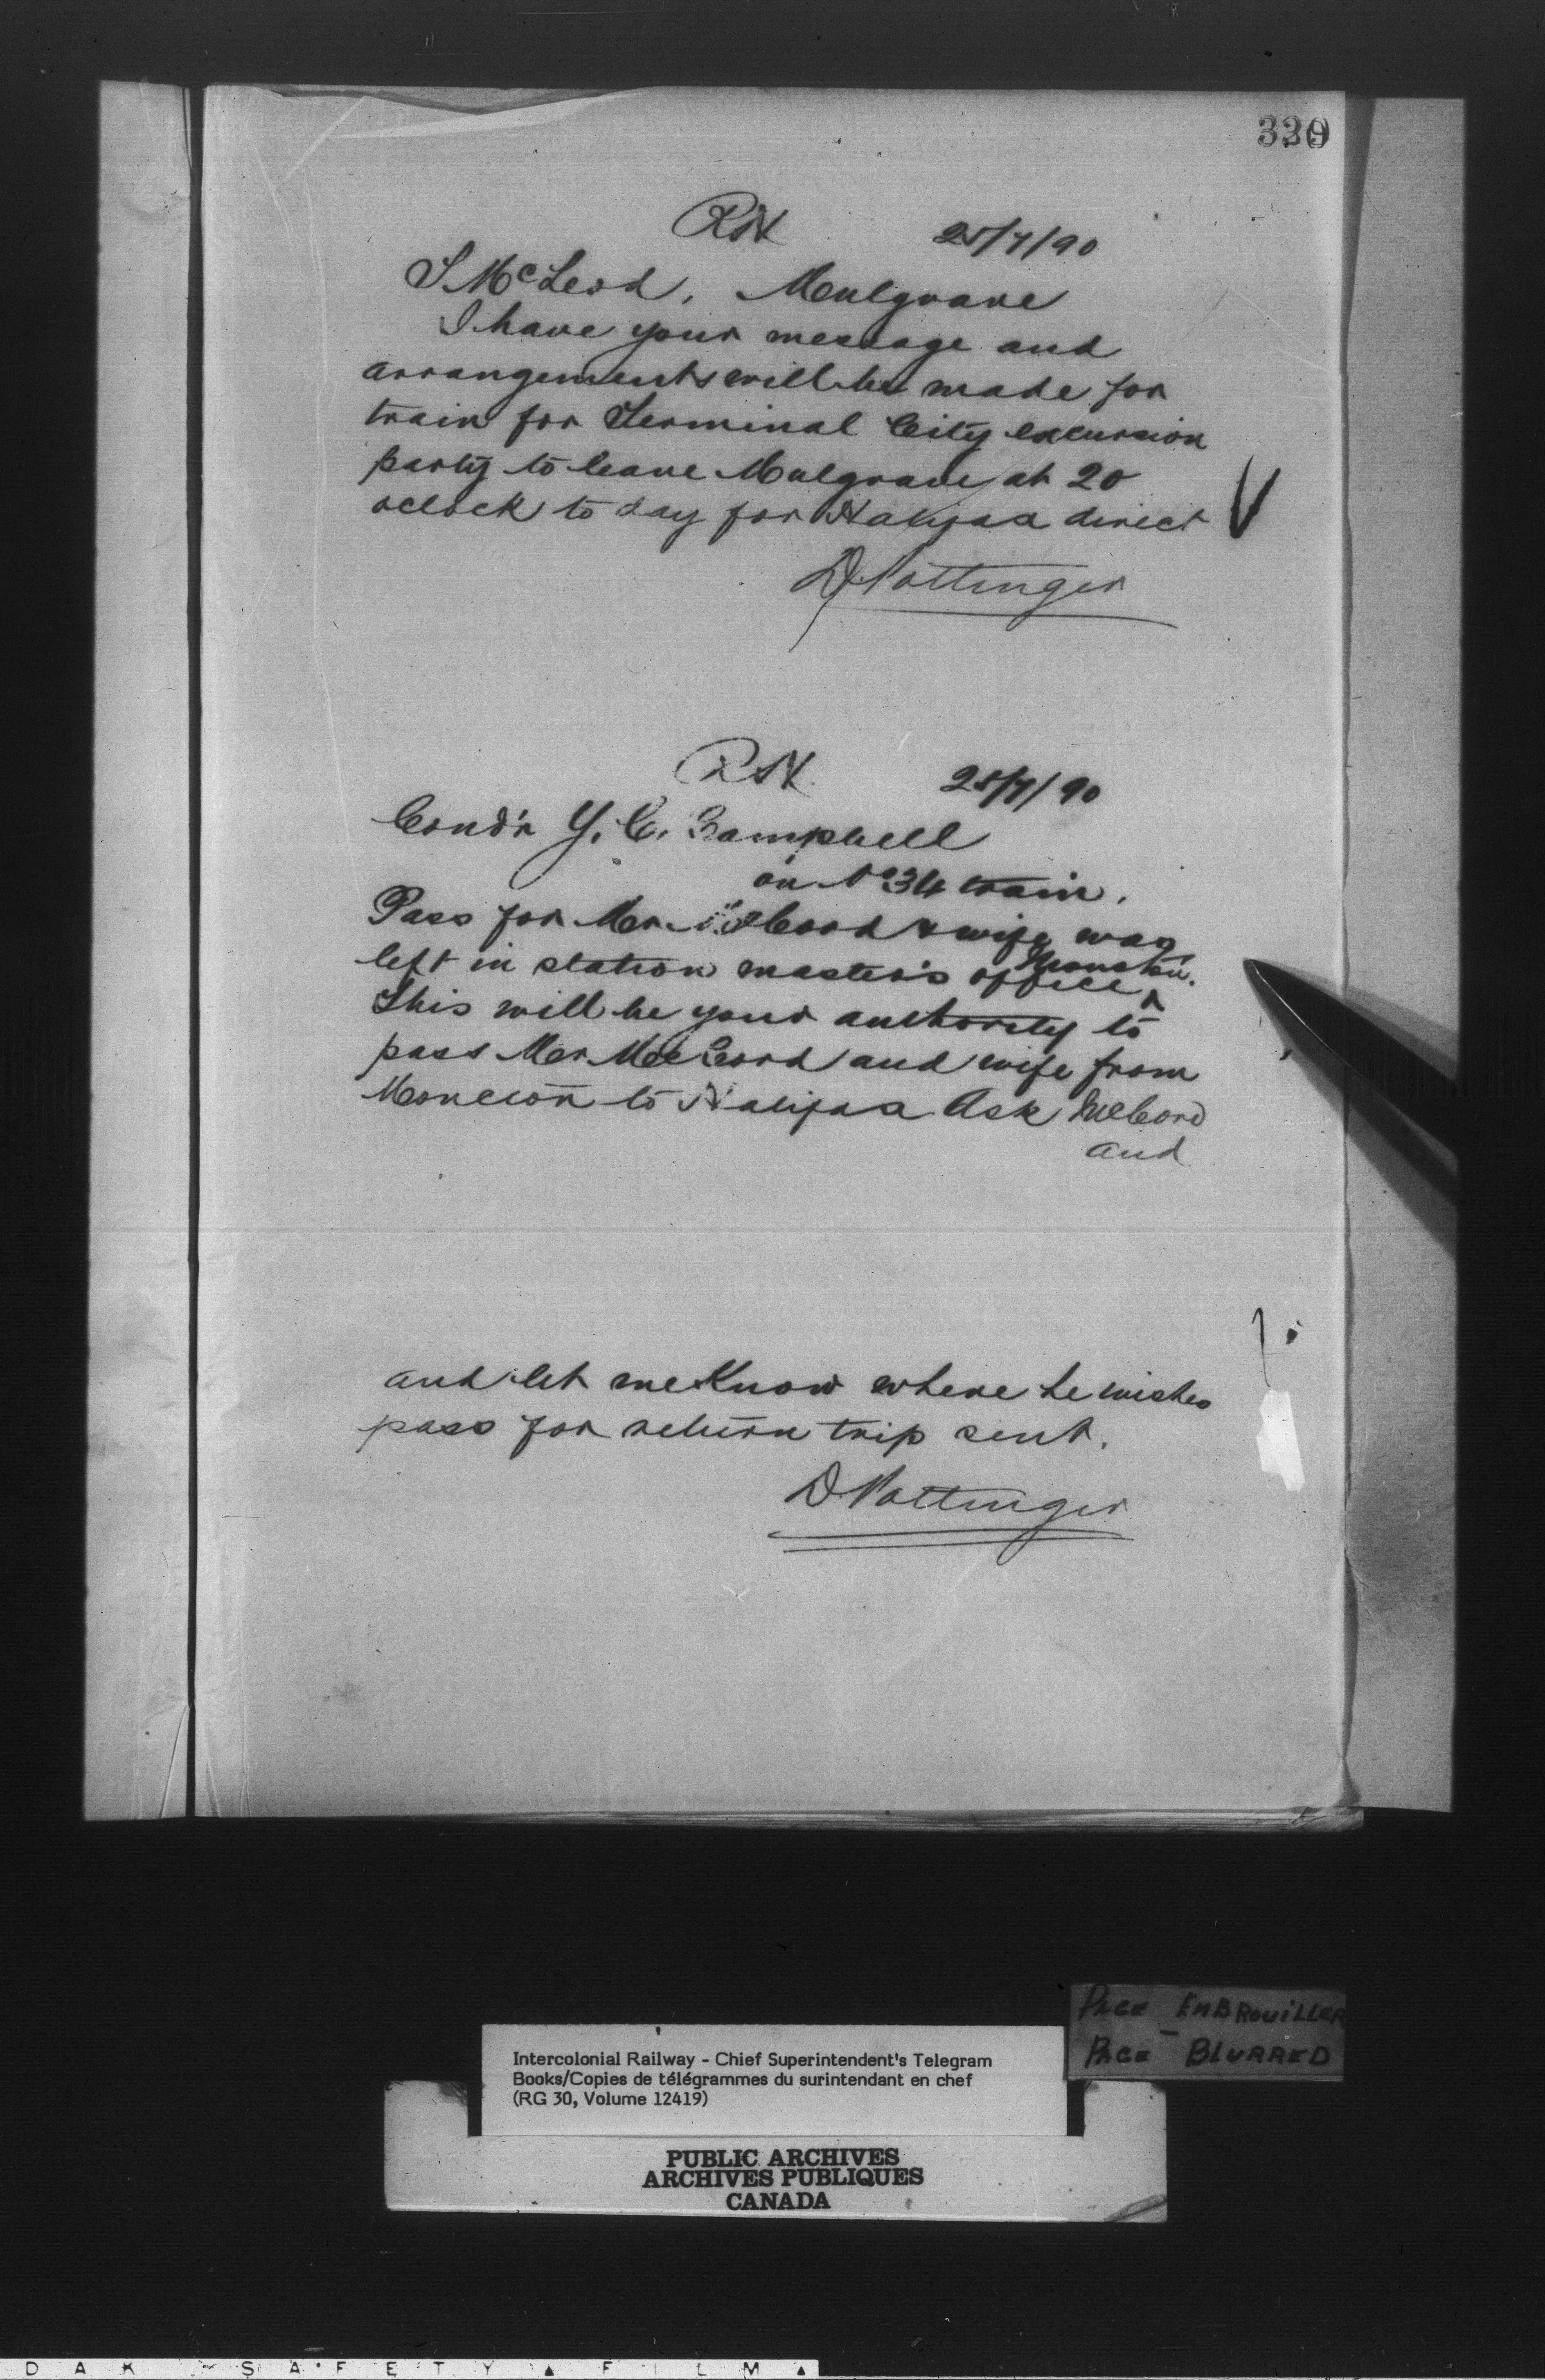 25/7/90
McLeod, Mulgrave
I have your message and
arrangements will be made for
train for Terminal City excursion
party to leave Mulgrave at 20
oclock to day for Halifax direct
D Pottinger
25/7/90
Cond'r Y. C. Campbell
on No 34 train.
Pass for Mr. McCord & wife was
left in station master's office Moncton.
This will be your authority to
pass Mr McCord and wife from
Moncton to Halifax Ask McCord
and
and let me know where he wishes
pass for return trip sent.
D Pottinger
PAGE EMBROUILLER
PAGE BLURRED
Intercolonial Railway - Chief Superintendent's Telegram
Books/Copies de télégrammes du surintendant en chef
(RG 30, Volume 12419)
PUBLIC ARCHIVES
ARCHIVES PUBLIQUES
CANADA
DAK SAFETY ▲ FILM ▲